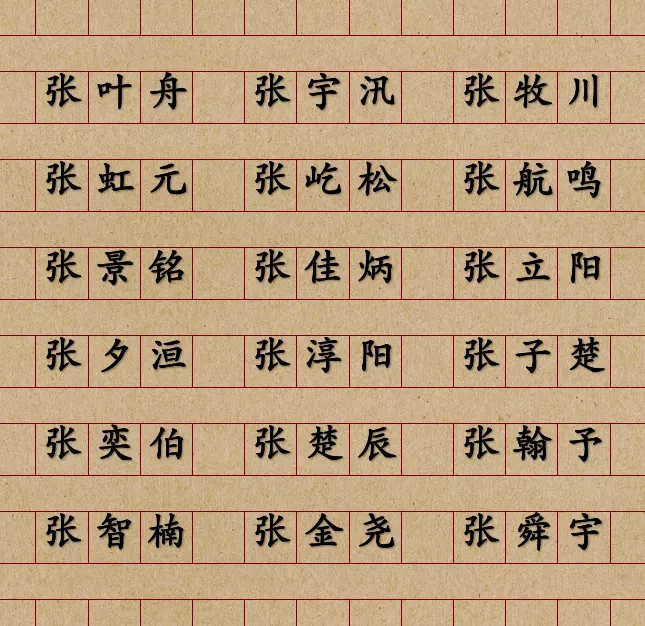 张叶舟 张宇汛 张牧川
张虹元 张屹松 张航鸣
张景铭 张佳炳 张立阳
张夕洹 张淳阳 张子楚
张奕伯 张楚辰 张翰予
张智楠 张金尧 张舜宇